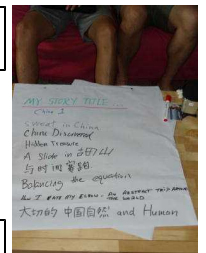 MY STORY TITLE...
China I
Sweat in China
China Discovered
Hidden Treasure
A Slide in
与时间
Balancing the equation
How I EARN MY ELBOW: AN ABSTRACT TRIP AROUND
THE WORLD
大切的 中国自然 and Human